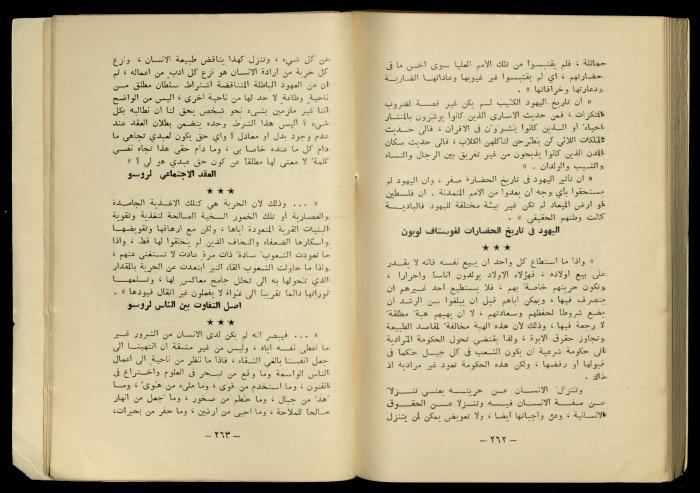 مماثلة ، فلم يقتبسوا من تلك الامم العليا سوى اخس ما فى
حضارتهم ، اي لم يقتبسوا غير عيوبها وعاداتها الضارية
ودعارتها وخرافاتها » .
« ان تاريخ اليهود الكئيب لم يكن غير قصة لضروب
المنكرات ، فمن حديث الاسارى الذين كانوا يوشرون بالمنشار
احياء أو الذين كانوا يشوون فى الافران ، فالى حديث
الملكات اللائى كن يطرحن لتأكلهن الكلاب ، فالى حديث سكان
المدن الذين كانوا يذبحون من غير تفريق بين الرجال والنساء
والشيب والولدان . »
« ان تأثير اليهود فى تاريخ الحضارة صفر ، وان اليهود لم
يستحقوا بأي وجه ان يعدوا من الامم المتمدنة . ان فلسطين
او ارض الميعاد لم تكن غير بيئة مختلقة لليهود فالبادية
كانت وطنهم الحقيقي » .
اليهود فى تاريخ الحضارات لغوستاف لوبون
★★★
« واذا ما استطاع كل واحد ان يبيع نفسه فانه لا يقدر
على بيع اولاده ، فهؤلاء الاولاد يولدون اناسا واحرارا ،
وتكون حريتهم خاصة بهم ، فلا يستطيع احد غيرهم ان
يتصرف فيها ، ويمكن اباهم قبل ان يبلغوا سن الرشد ان
يضع شروطا لحفظهم وسعادتهم ، لا ان يهبهم هبة مطلقة
لا رجعة فيها ، وذلك لأن هذه الهبة مخالفة لمقاصد الطبيعة
وتجاوز حقوق الابوة . ولذا يقتضى تحول الحكومة المرادية
الى حكومة شرعية ان يكون الشعب فى كل جيل حكما فى
قبولها او رفضها ، ولكن هذه الحكومة تعود غير مرادية اذ
ذاك .
وتنزل الانسان عن حريته يعنى تنزلا
عن صفة الانسان فيه وتنزلا عن الحقوق
الانسانية ، وعن واجباتها ايضا ، ولا تعويض يمكن لمن يتنزل
— ٢٦٢ —
عن كل شيء ، وتنزل كهذا يناقض طبيعة الانسان ، ونزع
كل حرية من ارادة الانسان هو نزع كل ادب من اعماله ، ثم
ان من العهود الباطلة المتناقضة اشتراط سلطان مطلق من
ناحية وطاعة لا حد لها من ناحية اخرى ، اليس من الواضح
اننا غير ملزمين بشيء نحو شخص يحق لنا ان نطالبه بكل
شيء ؟ اليس هذا الشرط وحده يتضمن بطلان العقد عند
عدم وجود بدل او معادل ؟ واي حق يكون لعبدي تجاهى ما
دام كل ما عنده خاصا بى ، وما دام حقى هذا تجاه نفسى
كلمة لا معنى لها مطلقا عن كون حق عبدي هو لى ؟ »
العقد الاجتماعي لروسو
★★★
« ... وذلك لأن الحرية هي كتلك الاغذية الجامدة
والعصارية او تلك الخمور السخية الصالحة لتغذية وتقوية
البنيات القوية المتعودة اياها ، ولكن مع ارهاقها وتقويضها
واسكارها الضعفاء والنحاف الذين لم يخلقوا لها قط ، واذا
ما تعودت الشعوب سادة ذات مرة عادت لا تستغنى عنهم ،
واذا ما حاولت الشعوب القاء النير ابتعدت عن الحرية بالمقدار
الذي تحولها به الى تحلل جامح معاكس لها ، وتسلمها
ثوراتها دائما تقريبا الى غواة لا يفعلون غير اثقال قيودها » .
اصل التفاوت بين الناس لروسو
★★★
« ... فيبصر انه لم يكن لدى الانسان من الشرور غير
ما اعطى نفسه اياه ، وليس من غير مشقة ان انتهينا الى
جعل انفسنا بالغي الشقاء ، فاذا ما نظر من ناحية الى اعمال
الناس الواسعة وما وقع من تبحر فى العلوم واختراع فى
الفنون ، وما استخدم من قوى ، وما ملىء من هوى ، وما
هد من جبال ، وما حطم من صخور ، وما جعل من انهار
صالحا للملاحة ، وما احيى من ارضين ، وما حفر من بحيرات،
— ٢٦٣ —